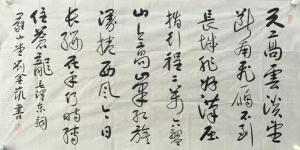 天高雲淡望
斷南飛雁不到
長城非好漢屈
指行程二萬六盤
山上高峰紅旗
漫捲西風今日
長纓在手何時縛
住蒼龍 毛澤東詞
羅山堂劉金貴書